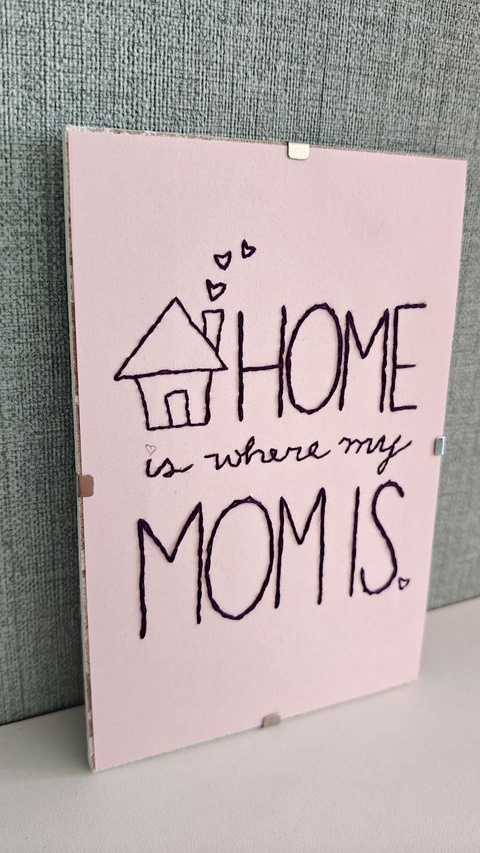 HOME
is where my
MOM IS.